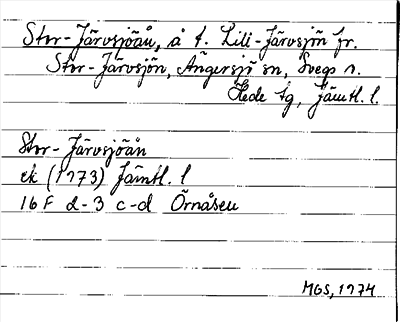 Stor-Järvsjöån, å t. Lill-Järvsjön fr.
Stor-Järvsjön, Ängersjö sn, Svegs s.
Hede tg, Jämtl. l.
Stor-Järvsjöån
ek (1973) Jämtl. l
16 F d-3 c-d Örnåsen
MGS, 1974